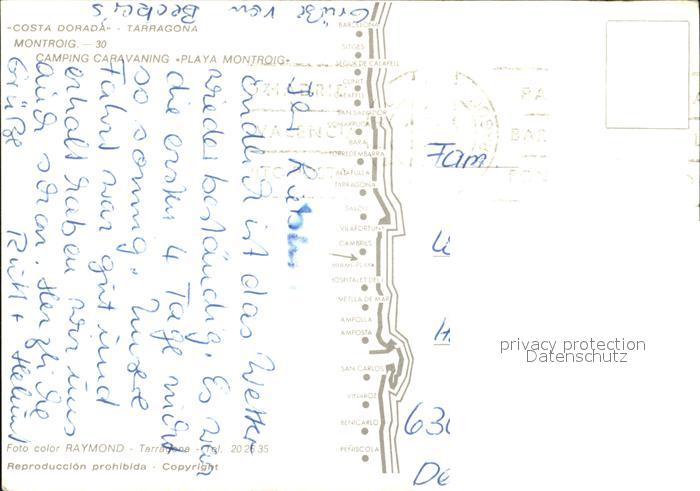 Grüße von Becker's
«COSTA DORADA» - TARRAGONA
MONTROIG. — 30
CAMPING CARAVANING «PLAYA MONTROIG»
Ihr Lieben
endlich ist das Wetter
wieder beständig. Es war
die ersten 4 Tage nicht
so sonnig. Unsere
Fahrt war gut und
erholt haben wir uns
auch schon. Herzliche
Grüße Ruth + Helmut
Foto color RAYMOND - Tarragona - Tel. 20 25 35
Reproducción prohibida - Copyright
BARCELONA
SITGES
CUNIT
SAN SALVADOR
BARA
TORREDEMBARRA
ALTAFULLA
TARRAGONA
SALOU
VILAFORTUNY
CAMBRILS
MIAMI-PLAYA
HOSPITALET DEL I.
METLLA DE MAR
AMPOLLA
AMPOSTA
SAN CARLOS
VINAROZ
BENICARLO
PEÑISCOLA
VALENCIA
Fam.
630
De
privacy protection
Datenschutz